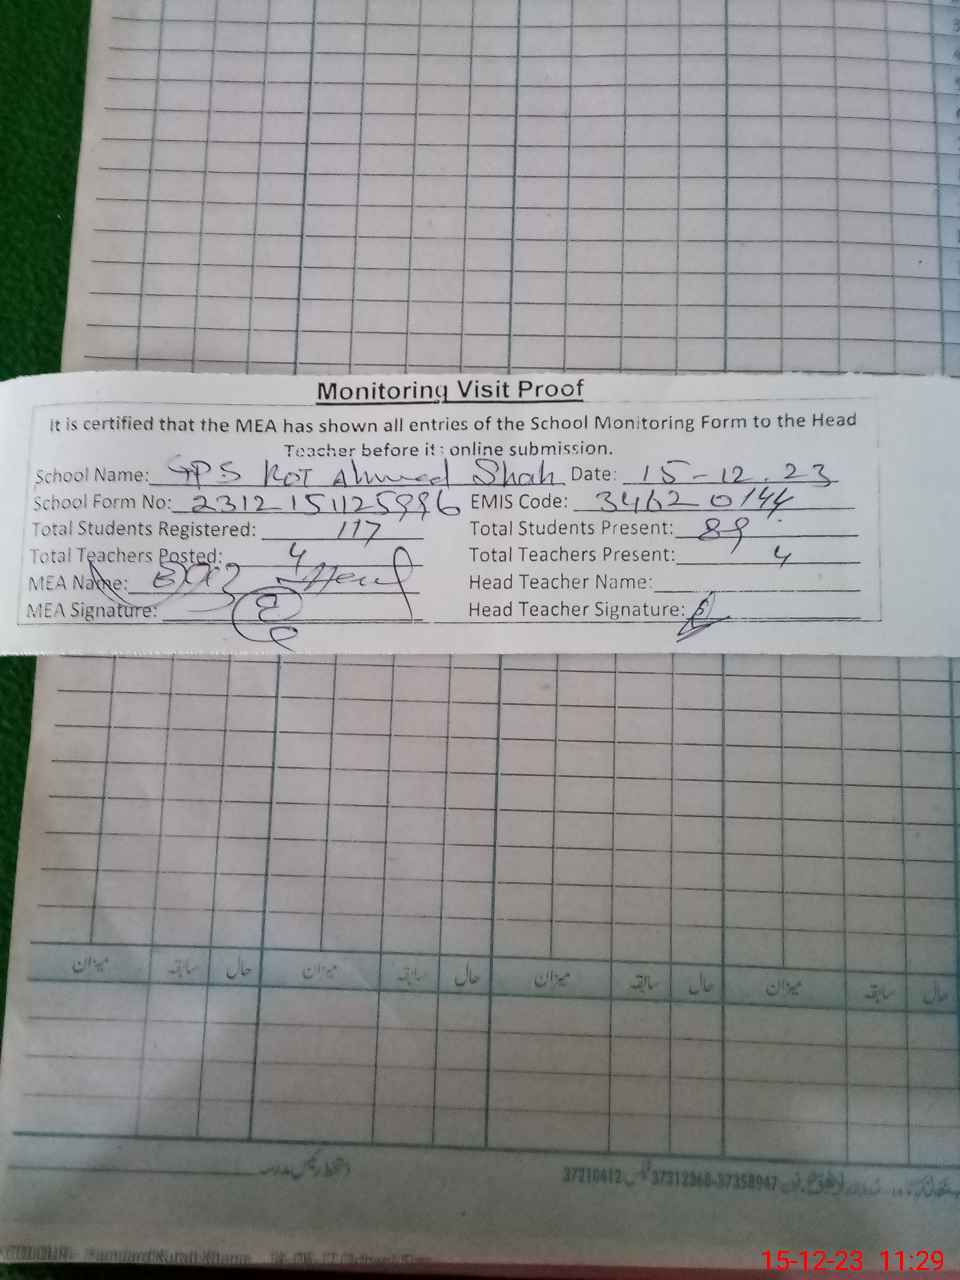 Monitoring Visit Proof
It is certified that the MEA has shown all entries of the School Monitoring Form to the Head
Teacher before it: online submission.
School Name: GPS Kot Ahmed Shah Date: 15-12.23
School Form No: 231215112599 6 EMIS Code: 34620144
Total Students Registered: 117 Total Students Present: 89
Total Teachers Posted: 4 Total Teachers Present: 4
MEA Name: Head Teacher Name:
MEA Signature: Head Teacher Signature:
میزان سابقہ حال میزان سابقہ حال میزان سابقہ حال میزان سابقہ حال
دستخط رئیس مدرسہ
37210412 37312360-37358947
15-12-23 11:29